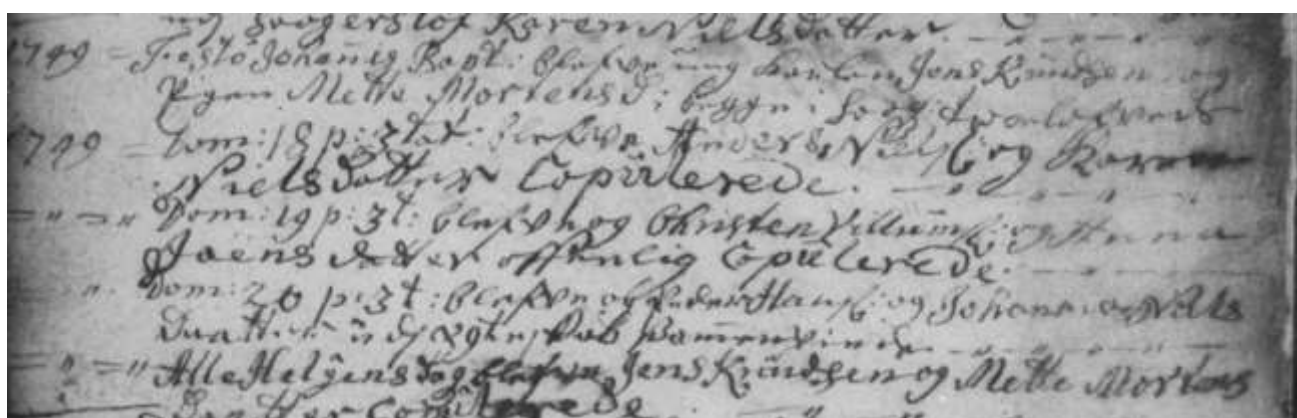 Karen Nielsdatter.
1749 = Festo Johannis Bapt: blefve ung Karlen Jens Knudsen og
Pigen Mette Mortensd: begge i
1749 = Dom: 18 p: 3tat: blefve Anders Niels: og Karen
Nielsdatter Copulerede.
Dom: 19 p: 3t: blefve og Christen Villums: og Anna
Joensdatter offentlig Copulerede.
Dom: 20 p: 3t: blefve og Peder Hans: og Johanna Niels
Daatter
Alle Helgens dag blefve Jens Knudsen og Mette Mortens
Daatter Copulerede